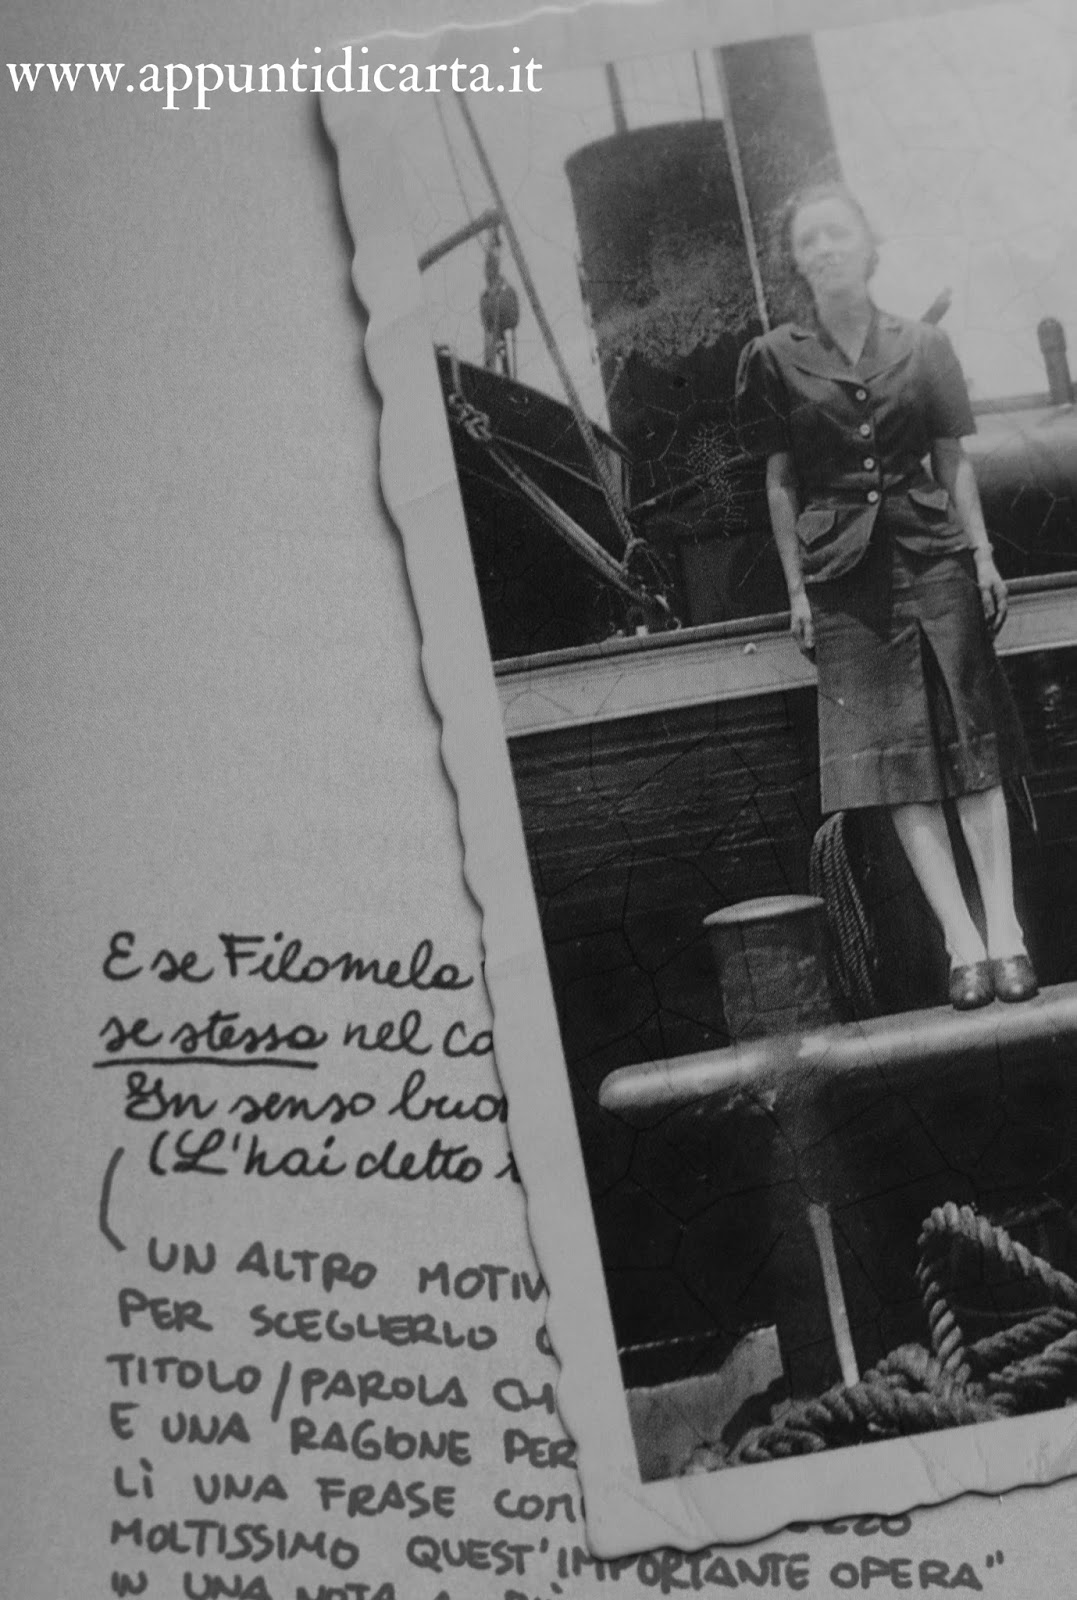 www.appuntidicarta.it
E se Filomela
se stessa nel co
In senso buo
(L'hai detto
UN ALTRO MOTIV
PER SCEGLIERLO C
TITOLO/PAROLA CH
E UNA RAGIONE PER
LÌ UNA FRASE COM
MOLTISSIMO QUEST'IMPORTANTE OPERA"
IN UNA NOTA A